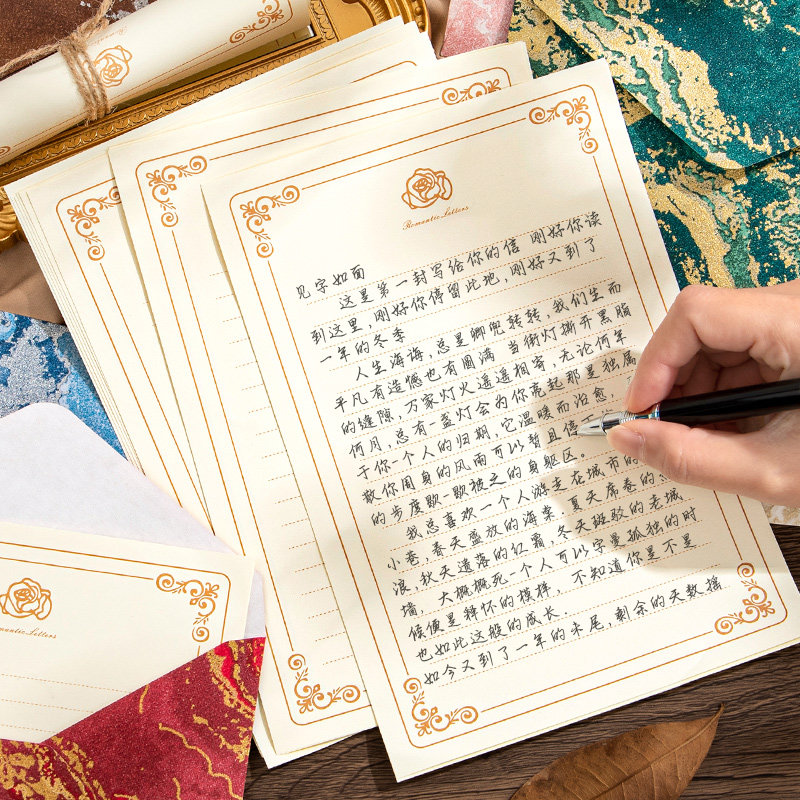 Romantic Letters
见字如面
这是第一封写给你的信 刚好你读
到这里，刚好你停留此地，刚好又到了
一年的冬季
人生海海，总是卿兜转转，我们生而
平凡有遗憾也有圆满 当街灯撕开黑脂
的缝隙，万家灯火遥遥相寄，无论何年
何月，总有一盏灯会为你亮起那是独属
于你一个人的归期，它温暖而治愈，
散你周身的风雨可以暂且信
的步度歇一歇被之的身躯区。
我总喜欢一个人游走在城市的
小巷，春天盛放的海棠，夏天席卷的
浪，秋天遗落的红霜，冬天斑驳的老城
墙，大概概死一个人可以字量孤独的时
候便是释怀的模样，不知道你是不是
也如此这般的成长.
如今又到了一年的末尾，剩余的天数摇
Romantic Letters